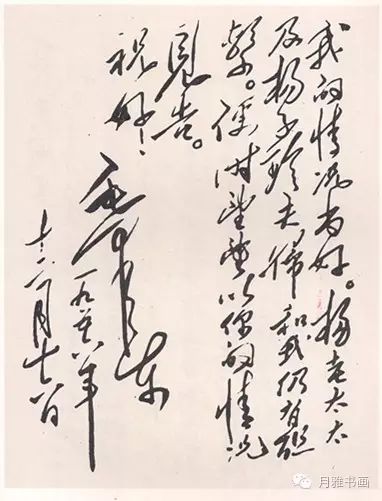 我的情况尚好。杨老太太
及杨子珍夫妇和我仍有联
系。便时望以你的情况
见告。
祝好！
毛泽东
一九五六年
十二月
月雅书画